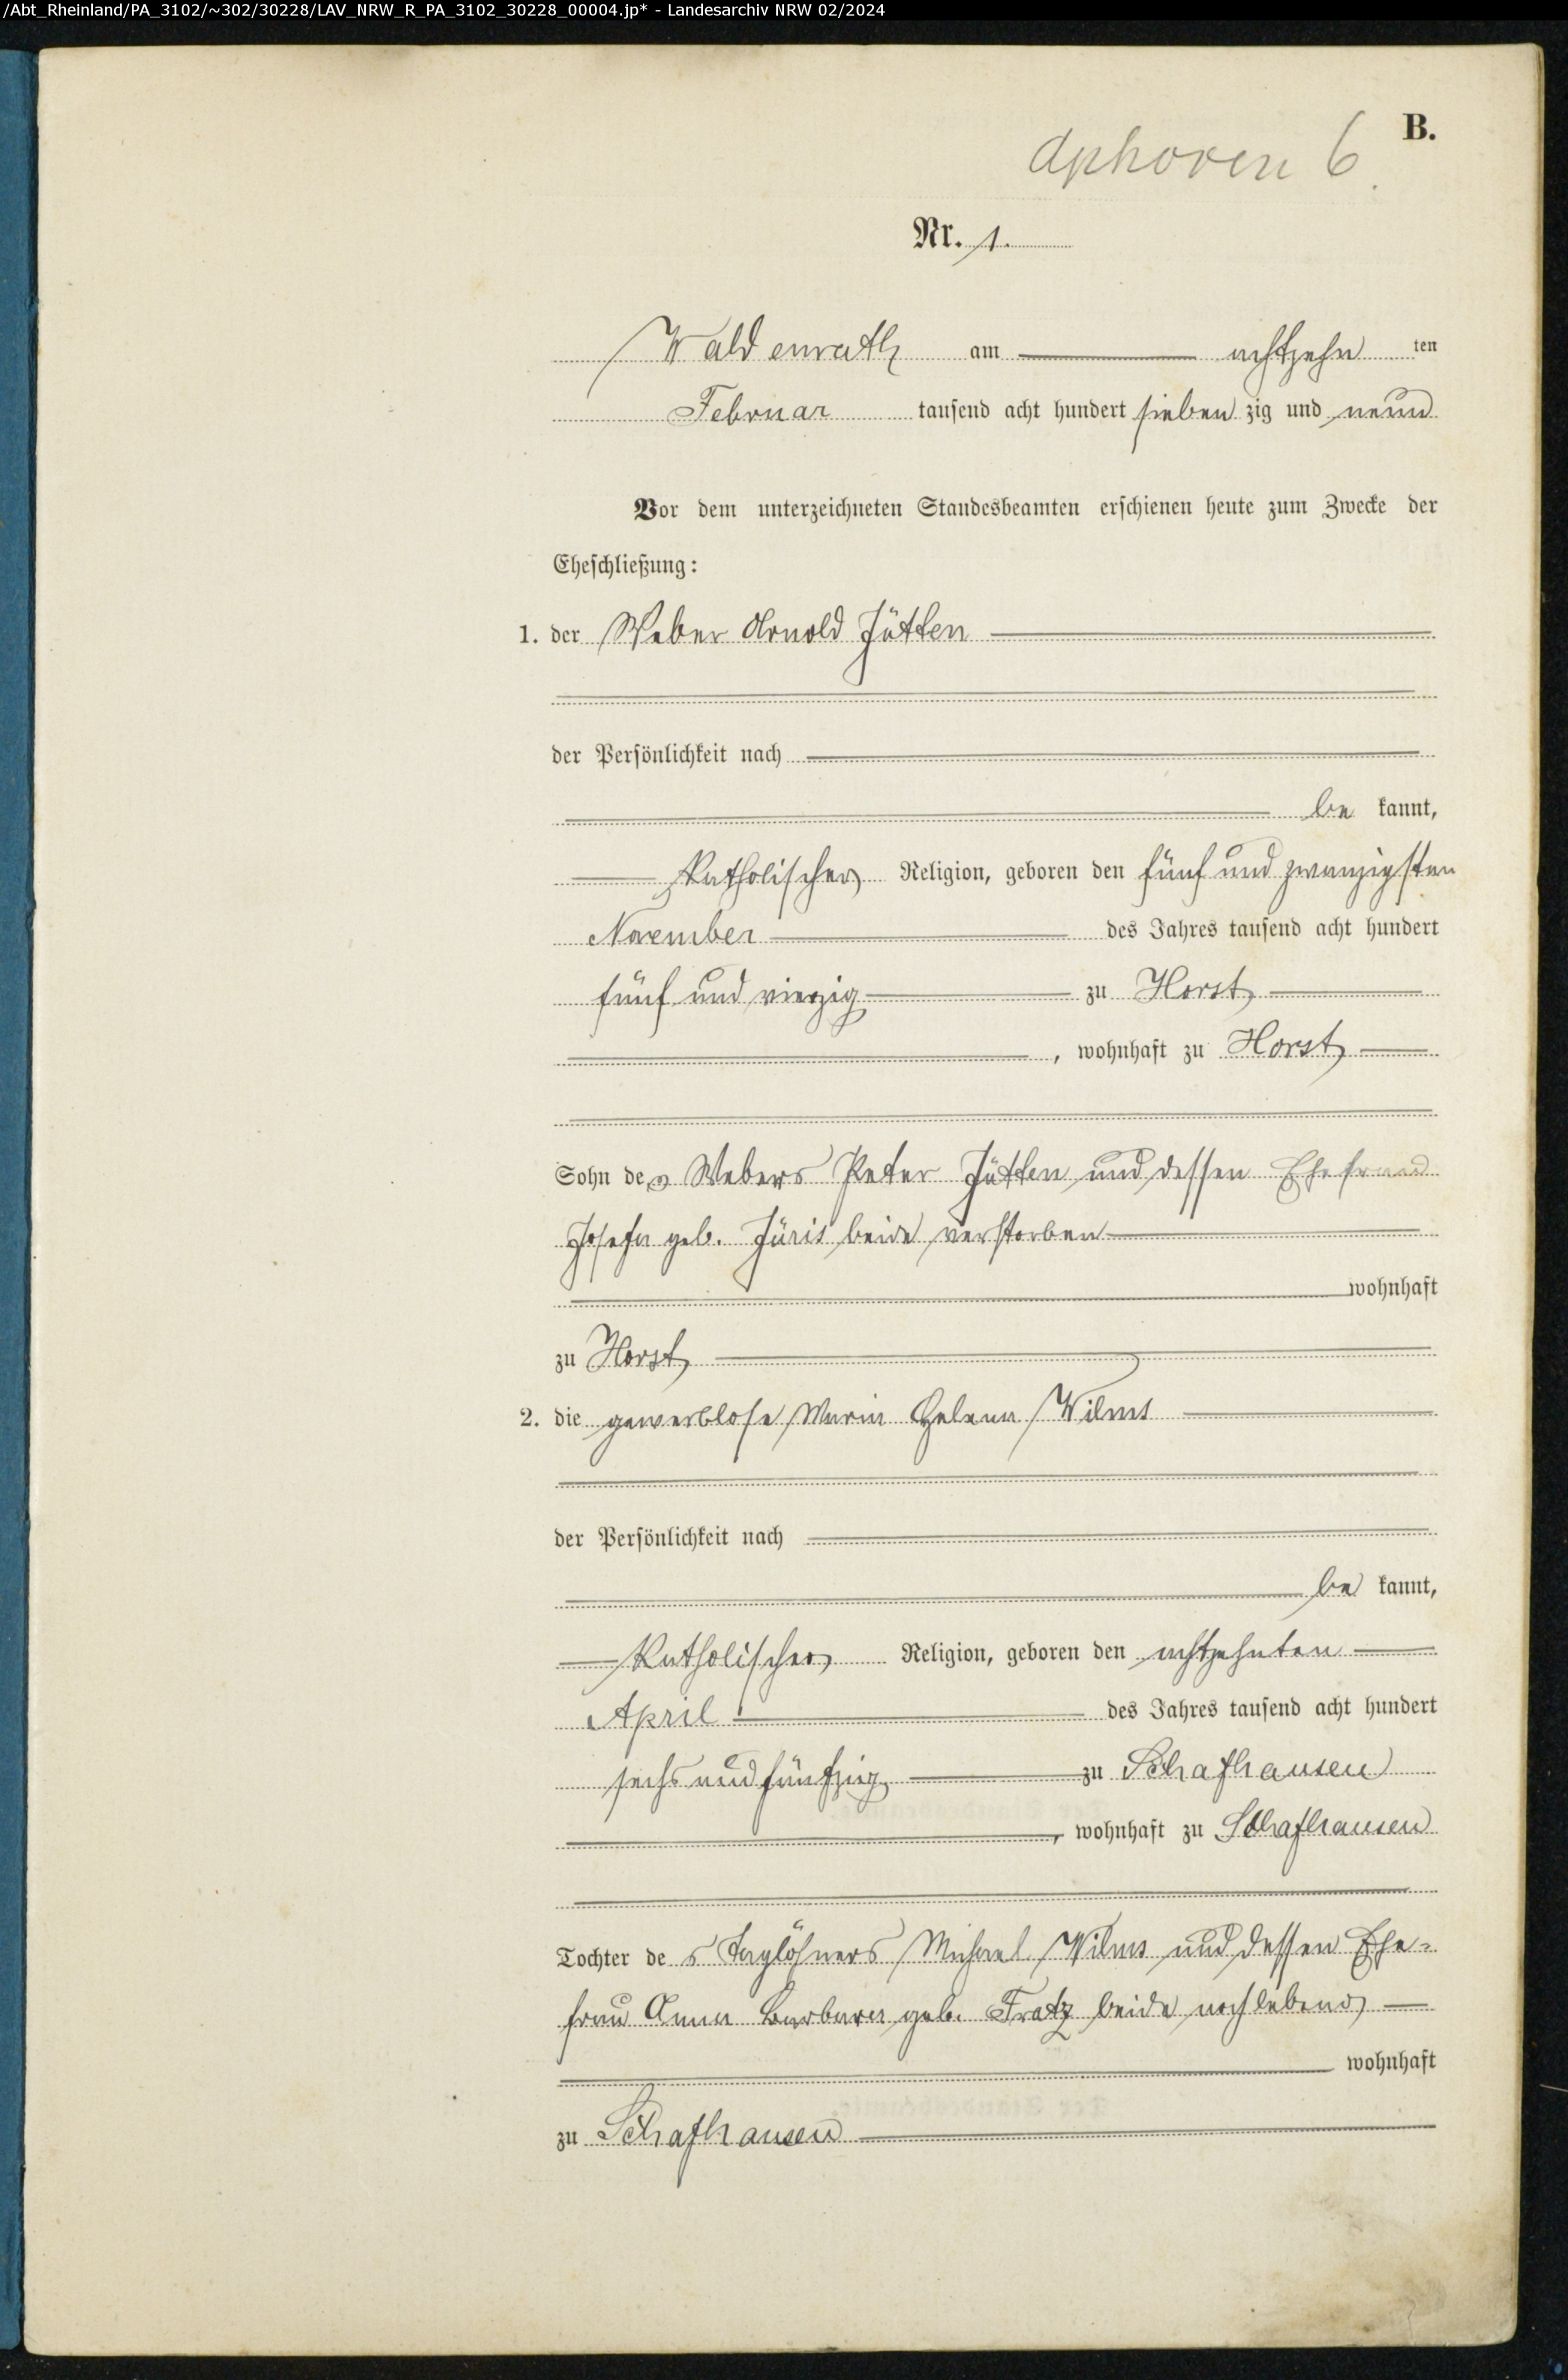 /Abt_Rheinland/PA_3102/~302/30228/LAV_NRW_R_PA_3102_30228_00004.jp* - Landesarchiv NRW 02/2024
B.
Aphoven 6.
Nr. 1.
Waldenrath am achtzehn ten
Februar tausend acht hundert sieben zig und neun
Vor dem unterzeichneten Standesbeamten erschienen heute zum Zwecke der
Eheschließung:
1. der Weber Arnold Jütten
der Persönlichkeit nach
be kannt,
katholischer Religion, geboren den fünf und zwanzigsten
November des Jahres tausend acht hundert
fünf und vierzig zu Horst
, wohnhaft zu Horst
Sohn des Webers Peter Jütten und dessen Ehefrau
Josefa geb. Jüris beide verstorben
wohnhaft
zu Horst
2. die gewerblose Maria Helena Wilms
der Persönlichkeit nach
be kannt,
katholischer Religion, geboren den achtzehnten
April des Jahres tausend acht hundert
sechs und fünfzig zu Schafhausen
, wohnhaft zu Schafhausen
Tochter de s Taglöhners Michael Wilms und dessen Ehe-
frau Anna Barbara geb. Fratz beide noch lebend
wohnhaft
zu Schafhausen